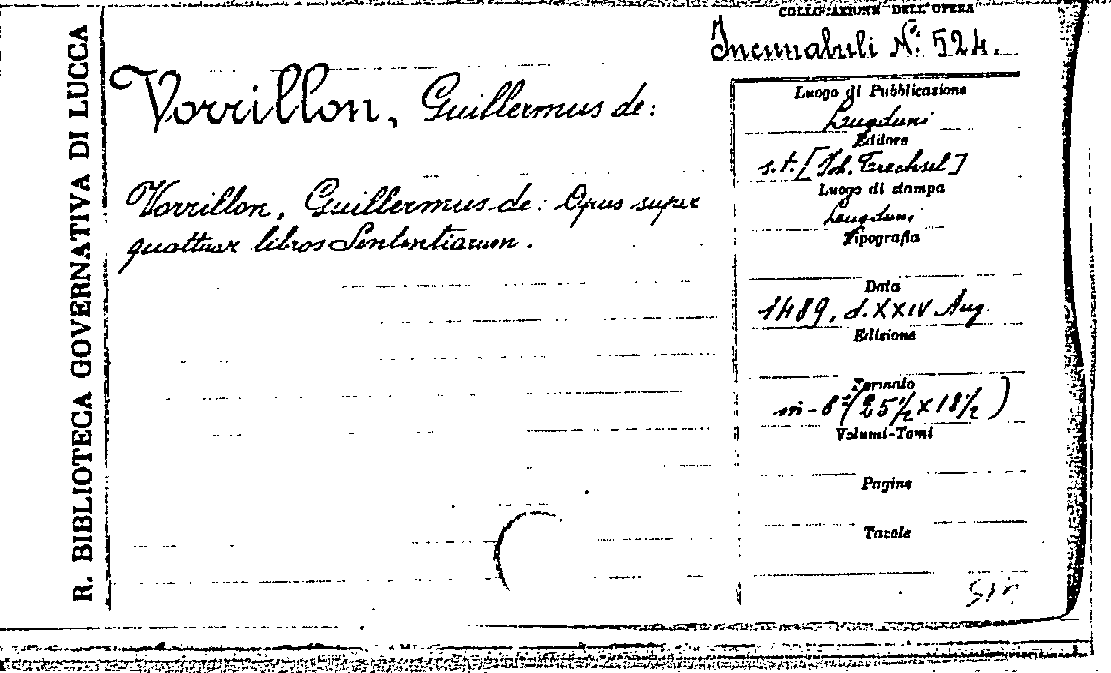 R. BIBLIOTECA GOVERNATIVA DI LUCCA
COLLOCAZIONE DELL'OPERA
Incunabuli N: 524.
Vorrillon, Guillermus de:
Vorrillon, Guillermus de: Opus super
quattuor libros Sententiarum.
Luogo di Pubblicazione
Lugduni
Editore
s.t. [Joh. Trechsel]
Luogo di stampa
Lugduni
Tipografia
Data
1489, d. XXIV Aug.
Edizione
Formato
in-8° (25½ x 18½)
Volumi-Tomi
Pagine
Tavole